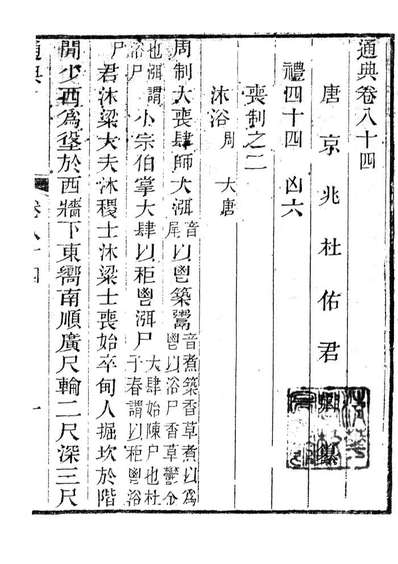 通典卷八十四
唐京兆杜佑君
禮四十四 凶六
喪制之二
沐浴 周 大唐
周制大喪肆師大渳音尾以鬯築鬻音煮築香草煮以為鬯以浴尸香草鬱金
也渳謂浴尸 小宗伯掌大肆以秬鬯渳尸大肆始陳尸也杜子春謂以秬鬯浴
尸 君沐梁大夫沐稷士沐梁士喪始卒甸人掘坎於階
間少西為垼於西牆下東嚮南順廣尺輪二尺深三尺
通典 卷八十四 一